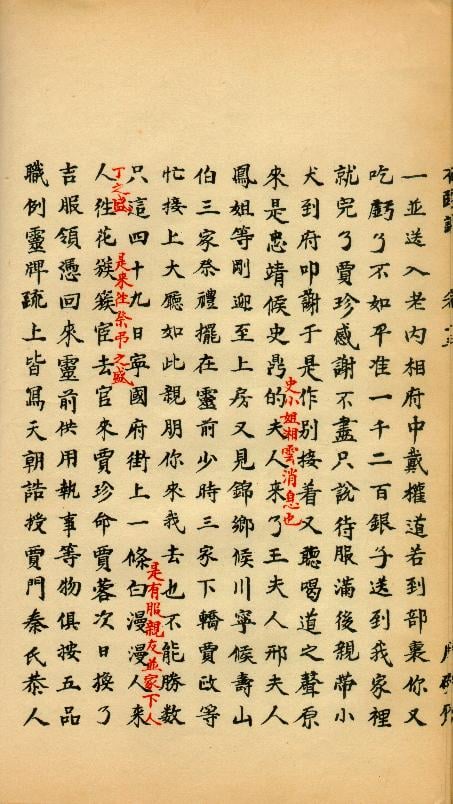 一並送入老內相府中戴權道若到部裏你又
吃虧了不如平准一千二百銀子送到我家裡
就完了賈珍感謝不盡只說待服滿後親帶小
犬到府叩謝于是作別接着又聽喝道之聲原
來是忠靖侯史鼎的夫人來了王夫人邢夫人
史小姐湘雲消息也
鳳姐等剛迎至上房又見錦鄉侯川寧侯壽山
伯三家祭禮擺在靈前少時三家下轎賈政等
忙接上大廳如此親朋你來我去也不能勝數
只這四十九日寧國府街上一條白漫漫人來
是有服親友並家下人
丁之盛
人徃花簇簇宦去官來賈珍命賈蓉次日換了
是來徃祭弔之盛
吉服領憑回來靈前供用執事等物俱按五品
職例靈牌疏上皆寫天朝誥授賈門秦氏恭人